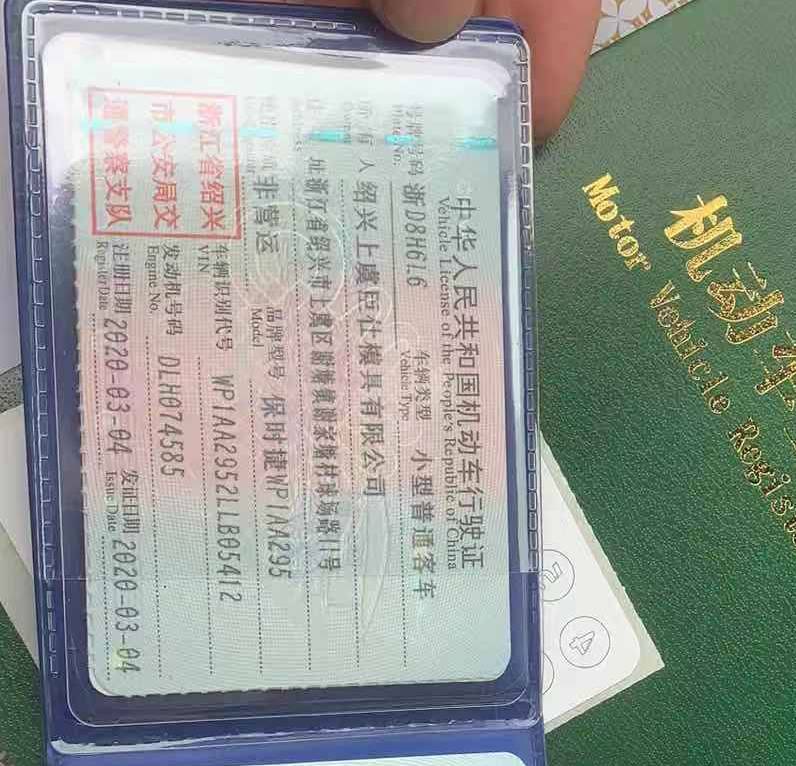 中华人民共和国机动车行驶证
Vehicle License of the People's Republic of China
号牌号码 浙D8H6L6 车辆类型 小型普通客车
Plate No. Vehicle Type
所有人 绍兴上虞臣仕模具有限公司
址 浙江省绍兴市上虞区谢塘镇谢家塘村球场路11号
非营运 品牌型号 保时捷WP1AA295
Model
车辆识别代号 WP1AA2952LLB05412
VIN
发动机号码 DLH074585
Engine No.
注册日期 2020-03-04 发证日期 2020-03-04
Register Date Issue Date
浙江省绍兴
市公安局交
通警察支队
机动车
Motor Vehicle Regist
4